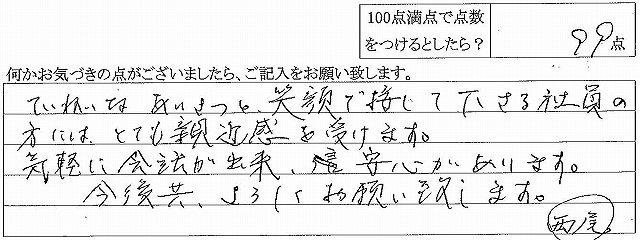 100点満点で点数
をつけるとしたら？
99点
何かお気づきの点がございましたら、ご記入をお願い致します。
ていねいな あいさつと、笑顔で接して下さる社員の
方には、とても親近感を受けます。
気軽に会話が出来、安心があります。
今後共、よろしくお願い致します。
西尾